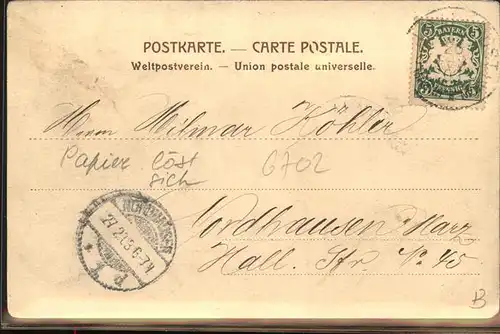 POSTKARTE. — CARTE POSTALE.
Weltpostverein. — Union postale universelle.
BAYERN
5 5
PFENNIG
Herrn Hilmar Köhler
Papier löst 6702
sich
NORDHAUSEN
Nordhausen Harz
Hall. Str. No. 45
B